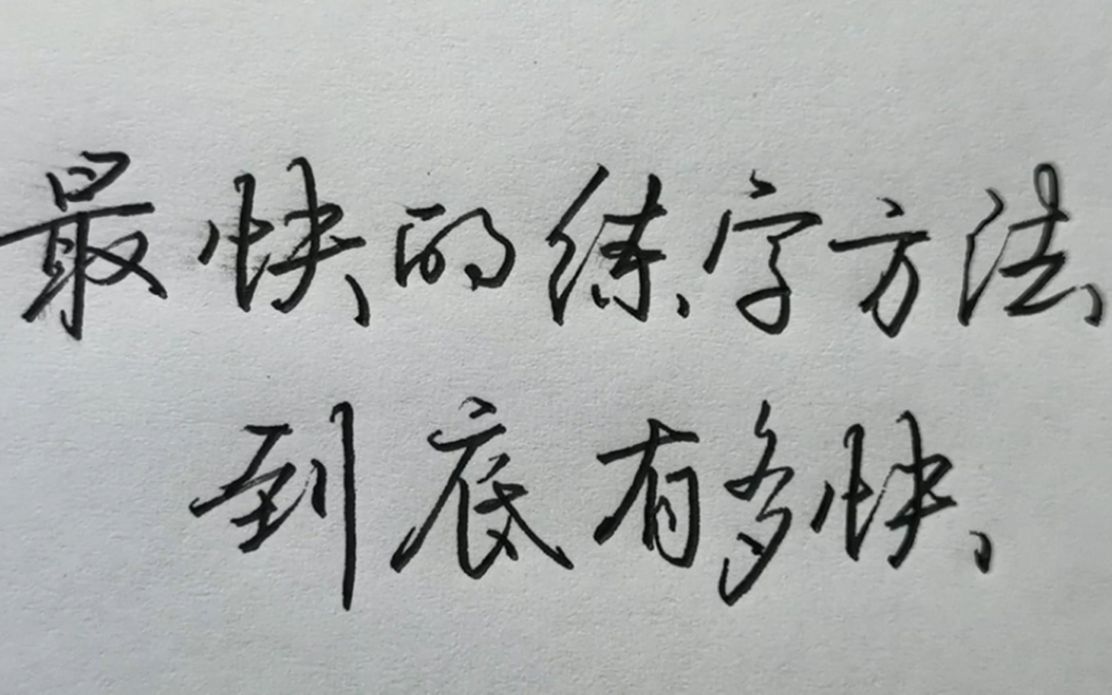 最快的练字方法
到底有多快